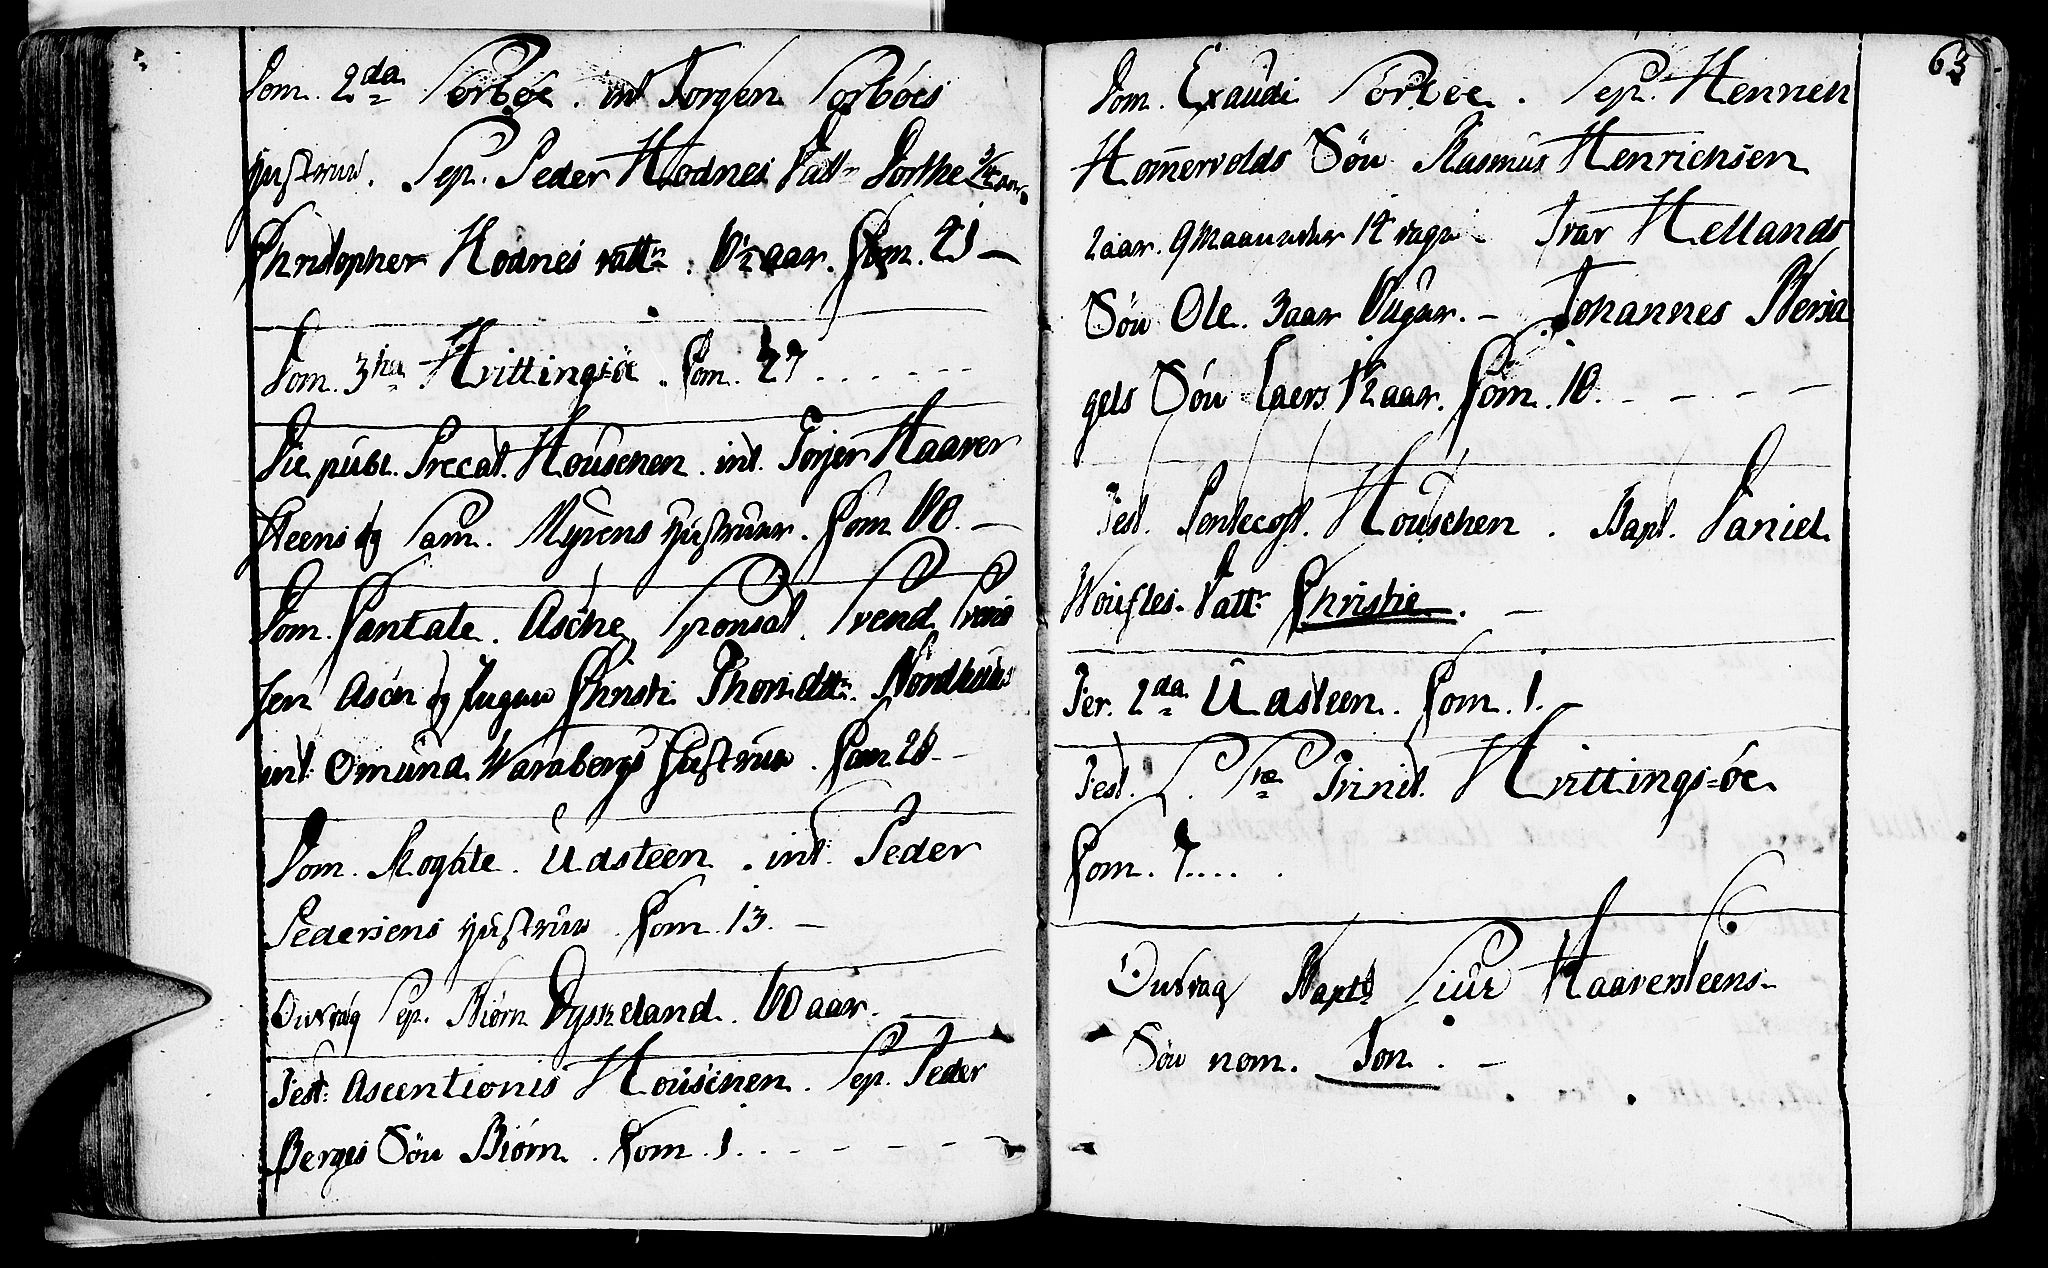 Dom. 2da Sørbøe. int. Torgen Sørbøes
Hustrue. Sep. Peder Hodnes Datt. Dorthe
Christopher Hodnes Datt. 6½ aar. Com. 21 —
Dom. 3tia Hvittings-öe. Com. 27 . . . . . .
Die publ. Precat. Housenen. int. Torjer Haaver
steens og Sam. Myrens Hustruer. Com. 60. —
Dom. Cantate. Asche, Sponsal. Svend Svend
sen Ascen og Christi Thorsdttr. Nordhuus
int. Omund Waraberg Hustrue. Com. 26 —
Dom. Rogate. Udsteen. int. Peder
Pedersens Hustrue. Com. 13. —
Onsdag Sep. Biörn Dysseland. 60 aar. —
Fest. Ascentionis Housenen. Sep. Peder
Berges Sön Biörn. Com. 1. . - - - -
63
Dom. Exaudi Sörbøe. Sep. Hennen
Hom̄ervolds Sön Rasmus Henrichsen
2 aar. 9 Maaneder 14 dage. Ivar Hellands
Sön Ole. 3 aar 6 uger. — Johannes Bersa
gels Sön Laers 1½ aar. Com. 10. - - - -
Fest. Pentecost. Houschen. Bapt. Daniel
Datt. Christie. —
Fer. 2da Udsteen. Com. 1. —
Fest. S. Stæ Trinit. Hvittings-öe
Com. 7. . . . .
Onsdag Bapt. Siur Haaversteens
Sön nom. Jon. —